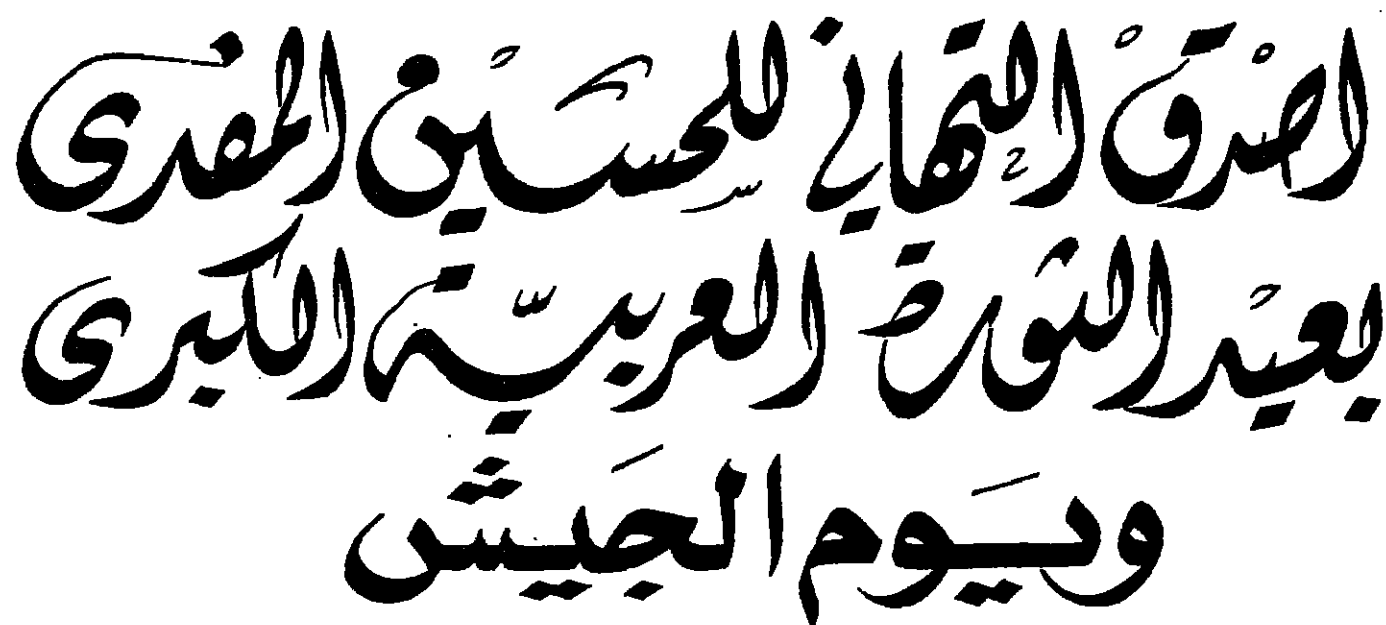 اصدق التهاني للحسين المفدى
بعيد الثورة العربية الكبرى
ويوم الجيش